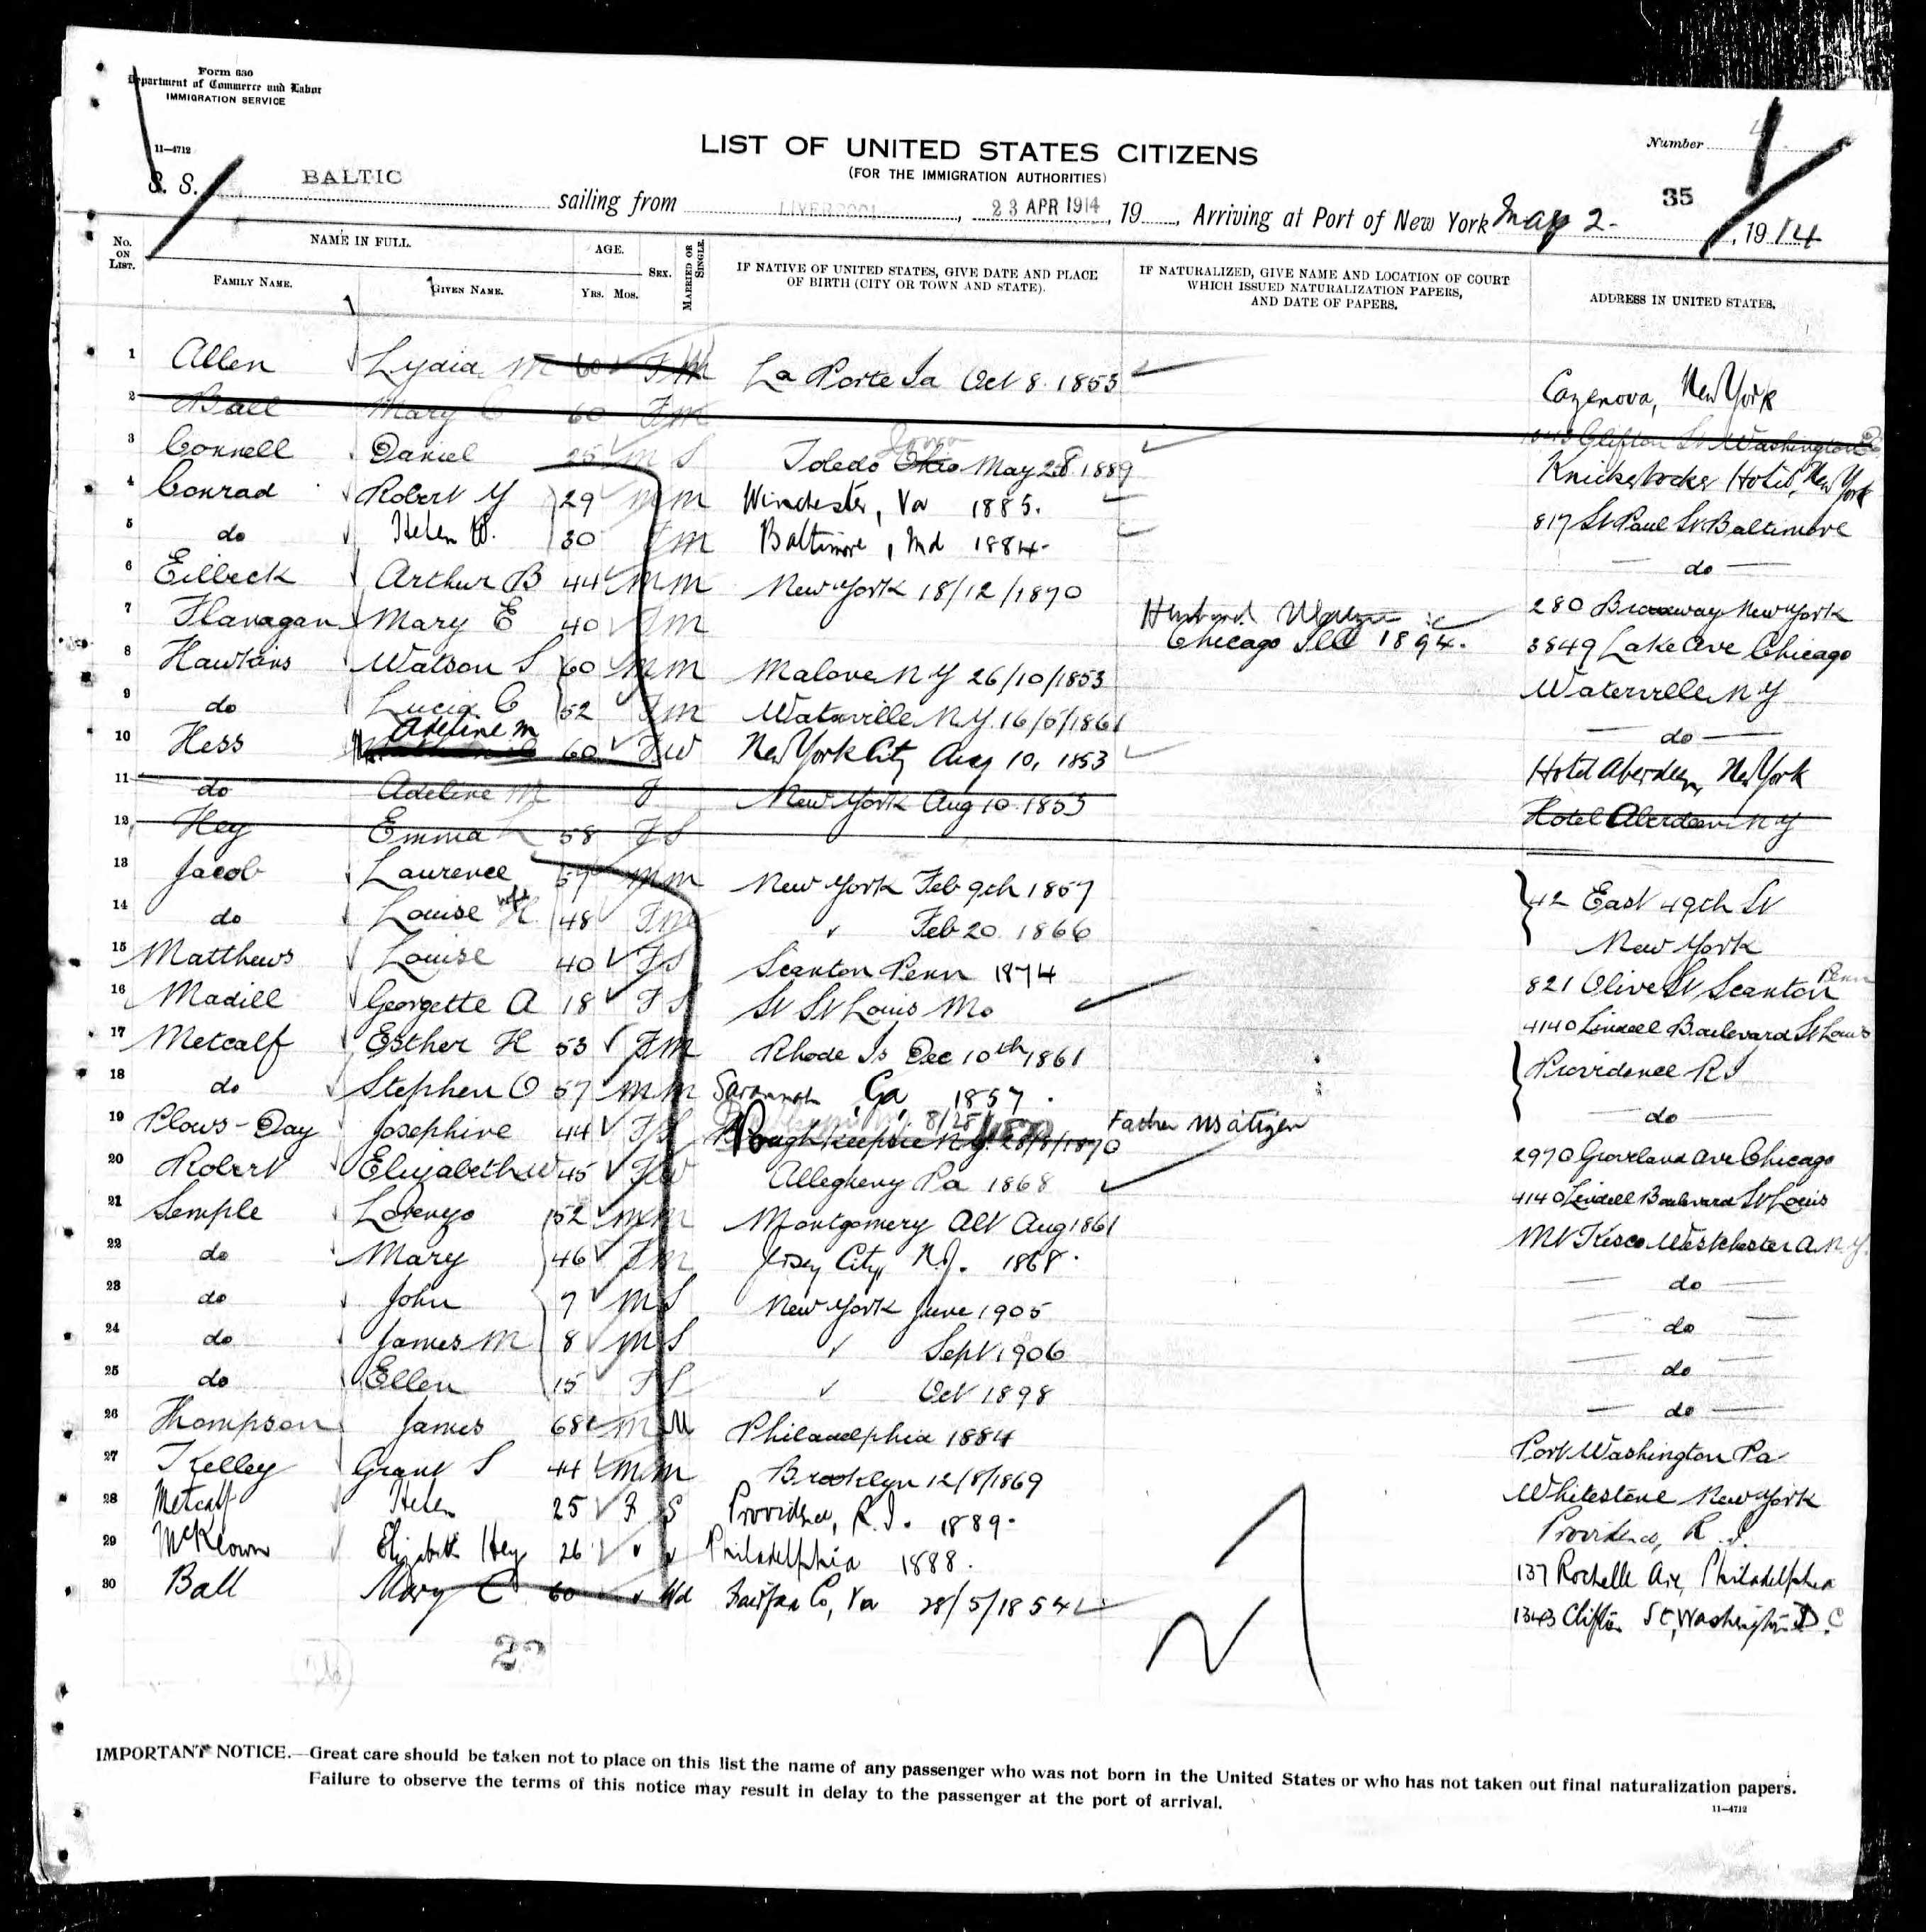 Form 630
Department of Commerce and Labor
IMMIGRATION SERVICE
11—4712
LIST OF UNITED STATES CITIZENS
(FOR THE IMMIGRATION AUTHORITIES)
Number
35
S. S. BALTIC sailing from LIVERPOOL, 23 APR 1914, 19 , Arriving at Port of New York May 2- , 1914
No. ON LIST. NAME IN FULL. AGE. SEX. MARRIED OR SINGLE. IF NATIVE OF UNITED STATES, GIVE DATE AND PLACE OF BIRTH (CITY OR TOWN AND STATE). IF NATURALIZED, GIVE NAME AND LOCATION OF COURT WHICH ISSUED NATURALIZATION PAPERS, AND DATE OF PAPERS. ADDRESS IN UNITED STATES.
FAMILY NAME. GIVEN NAME. YRS. MOS.
1 Allen Lydia M 60 F M La Porte Ia Oct 8. 1853 Cazenova, New York
2 Ball Mary C 60 F M 1343 Clifton St Washington
3 Connell Daniel 25 M S Toledo Ohio Iowa May 28 1889 Knickerbocker Hotel, New York
4 Conrad Robert Y 29 M M Winchester, Va 1885. 817 St Paul St Baltimore
5 do Helen W. 30 F M Baltimore, Md 1884- do
6 Eilbeck Arthur B 44 M M New York 18/12/1870 280 Broadway New York
7 Flanagan Mary E 40 F M Husband Chicago Ill 1894. 3849 Lake Ave Chicago
8 Hawkins Watson S 60 M M Malone N Y 26/10/1853 Waterville N Y
9 do Lucia C 52 F M Waterville N.Y. 16/5/1861 do
10 Hess Adeline M 60 F W New York City Aug 10, 1853 Hotel Aberdeen, New York
11 do Adeline M F New York Aug 10. 1853 Hotel Aberdeen N Y
12 Hey Emma 58 F S
13 Jacob Laurence 57 M M New York Feb 9th 1857 42 East 49th St
14 do Louise H wife 48 F M " Feb 20. 1866 New York
15 Matthews Louise 40 F S Scanton Penn 1874 821 Olive St Scanton Penn
16 Madill Georgette A 18 F S St St Louis Mo 4140 Lindell Boulevard St Louis
17 Metcalf Esther H 53 F M Rhode Is Dec 10th 1861 Providence R I
18 do Stephen O 57 M M Savannah, Ga, 1857. do
19 Plows-Day Josephine 44 F S Poughkeepsie N.Y. 28/8/1870 8/28/ Father US citizen 2970 Groveland Ave Chicago
20 Robert Elizabeth W 45 F W Allegheny Pa 1868 4140 Lindell Boulevard St Louis
21 Semple Lorenzo 52 M M Montgomery Al Aug 1861 Mt Kisco Westchester N.Y.
22 do Mary 46 F M Jersey City, N.J. 1868. do
23 do John 7 M S New York June 1905 do
24 do James M 8 M S " Sept 1906 do
25 do Ellen 15 F S " Oct 1898 do
26 Thompson James 68 M M Philadelphia 1884 Port Washington Pa
27 Kelley Grant S 44 M M Brooklyn 12/8/1869 Whitestone New York
28 Metcalf Helen 25 F S Providence, R.I. 1889. Providence, R.I.
29 McKeown Elizabeth Hey 26 " " Philadelphia 1888. 137 Rochelle Ave, Philadelphia
30 Ball Mary C 60 " Wd Fairfax Co, Va 28/5/1854 1343 Clifton St, Washington D.C
IMPORTANT NOTICE.—Great care should be taken not to place on this list the name of any passenger who was not born in the United States or who has not taken out final naturalization papers.
Failure to observe the terms of this notice may result in delay to the passenger at the port of arrival.
11—4712